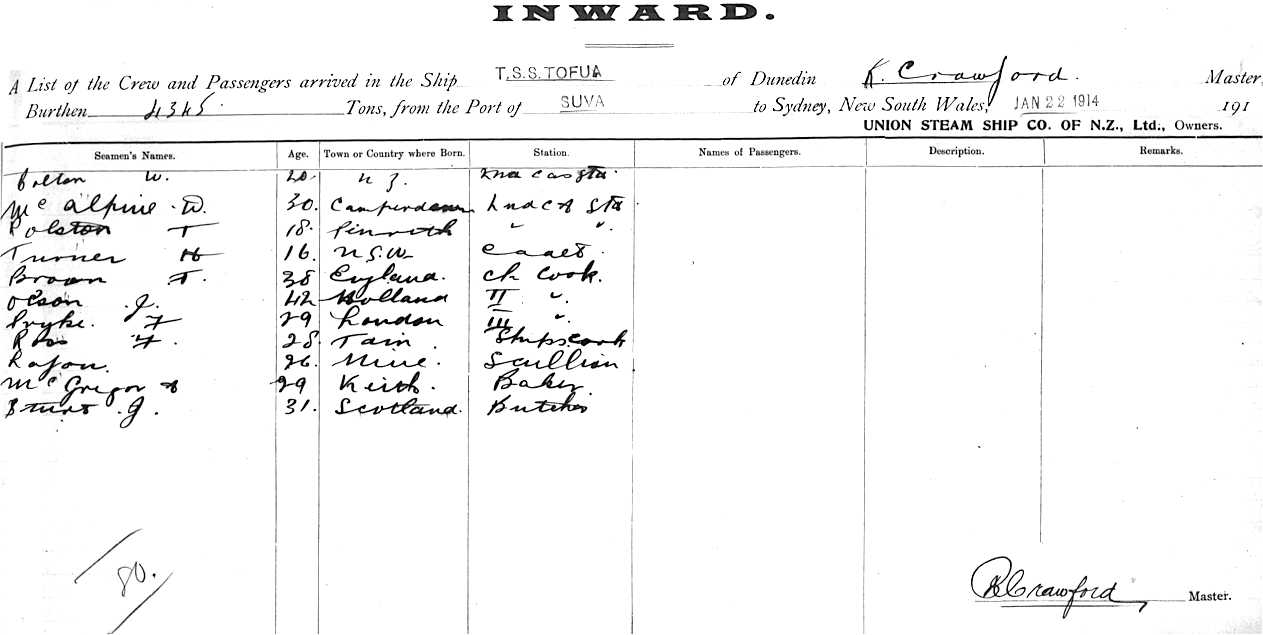 INWARD.
A List of the Crew and Passengers arrived in the Ship T.S.S. TOFUA of Dunedin K. Crawford. Master,
Burthen 4345. Tons, from the Port of SUVA to Sydney, New South Wales, JAN 22 1914 191
UNION STEAM SHIP CO. OF N.Z., Ltd., Owners.
Seamen's Names. Age. Town or Country where Born. Station. Names of Passengers. Description. Remarks.
Bolton W. 20. N Z.
McAlpine D. 30. Camperdown
Rolston T 18. Penrith " ".
Turner H 16. N.S.W. Cadet.
Brown T. 38 England. Ch Cook.
Olson J. 42 Holland II ".
Pryke. F 29 London III "
Ross F. 28. Tain Ships cook
26. Scullion
McGregor A 29 Keith. Baker.
J. 31. Scotland. Butcher
80.
K Crawford Master.